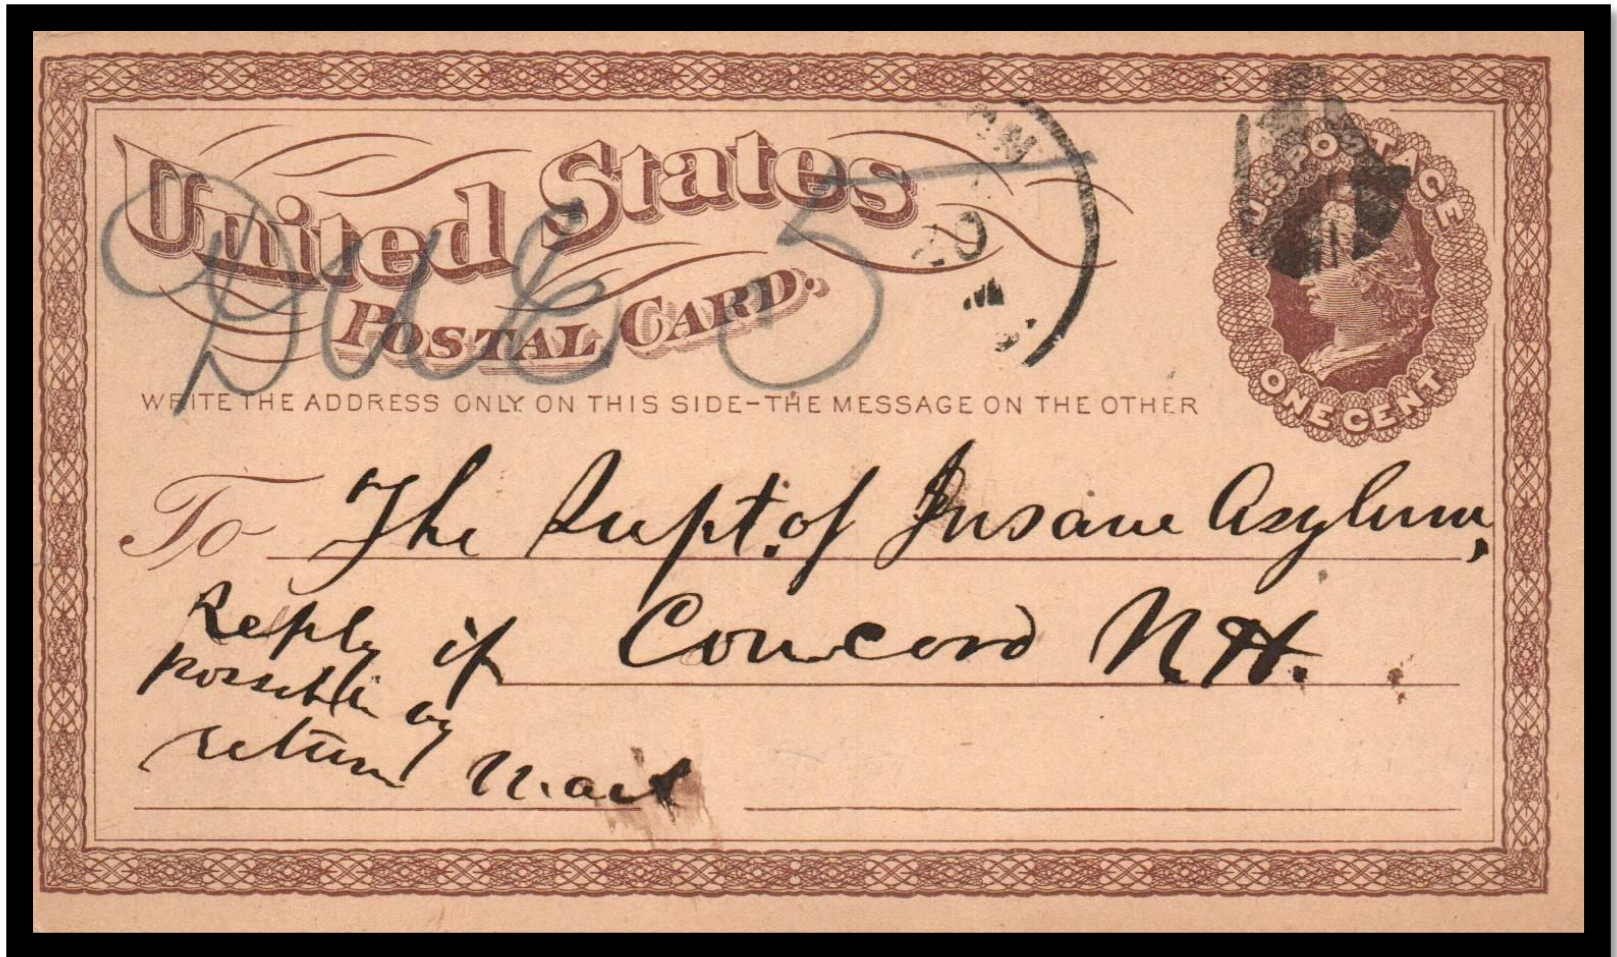 United States
POSTAL CARD.
Due 5
20
U.S. POSTAGE
ONE CENT
WRITE THE ADDRESS ONLY ON THIS SIDE-THE MESSAGE ON THE OTHER
To The Supt. of Insane Asylum,
Concord N.H.
Reply if
possible by
return Mail